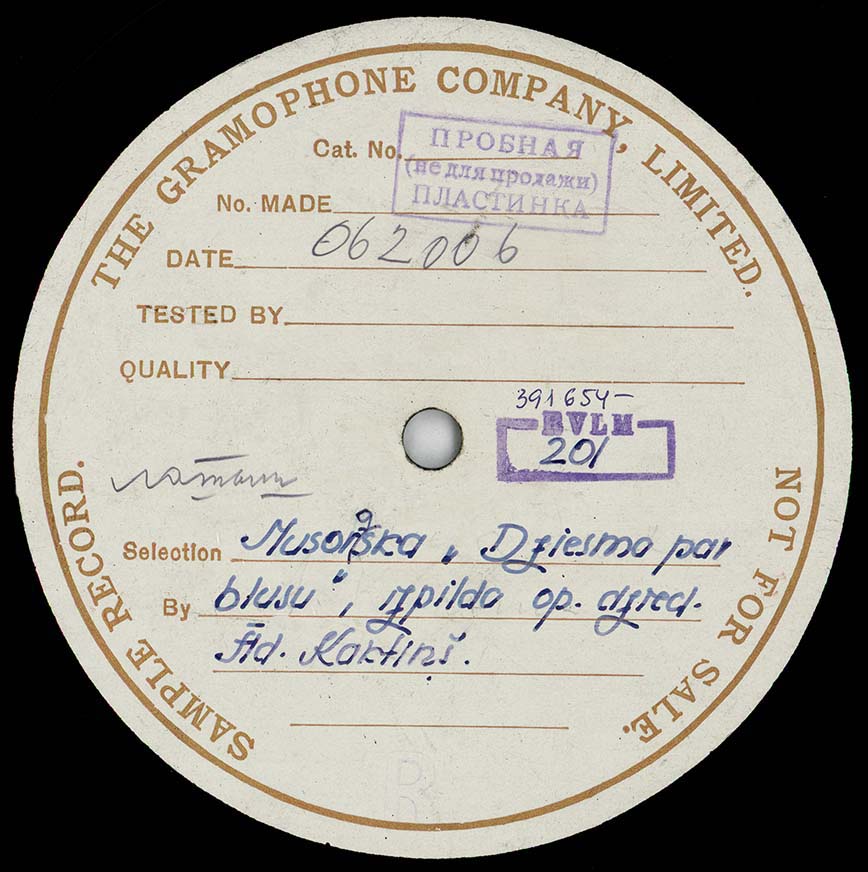 THE GRAMOPHONE COMPANY, LIMITED.
Cat. No.
ПРОБНАЯ
(не для продажи)
ПЛАСТИНКА
No. MADE
DATE 062006
TESTED BY
QUALITY
391654-
RVLM
201
Selection Musorgska „Dziesma par
By blusu", izpilda op. dzied.
Ād. Kaktiņš.
SAMPLE RECORD.
NOT FOR SALE.